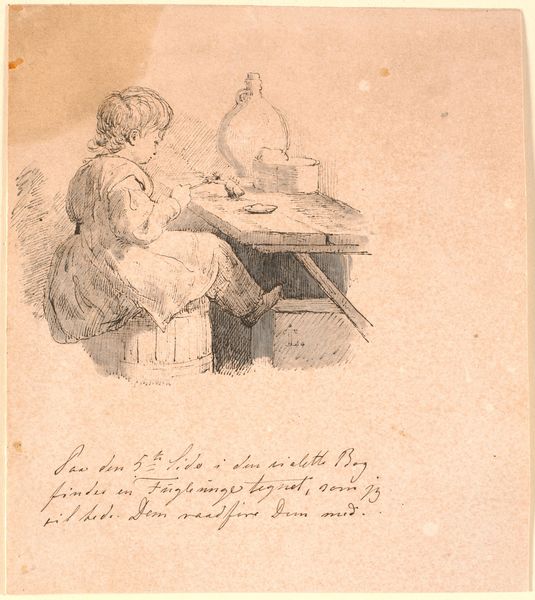 844
Paa den 5te Side i den violette Bog
findes en Fugleunge tegnet, som jeg
vil bede Dem raadføre Dem med.